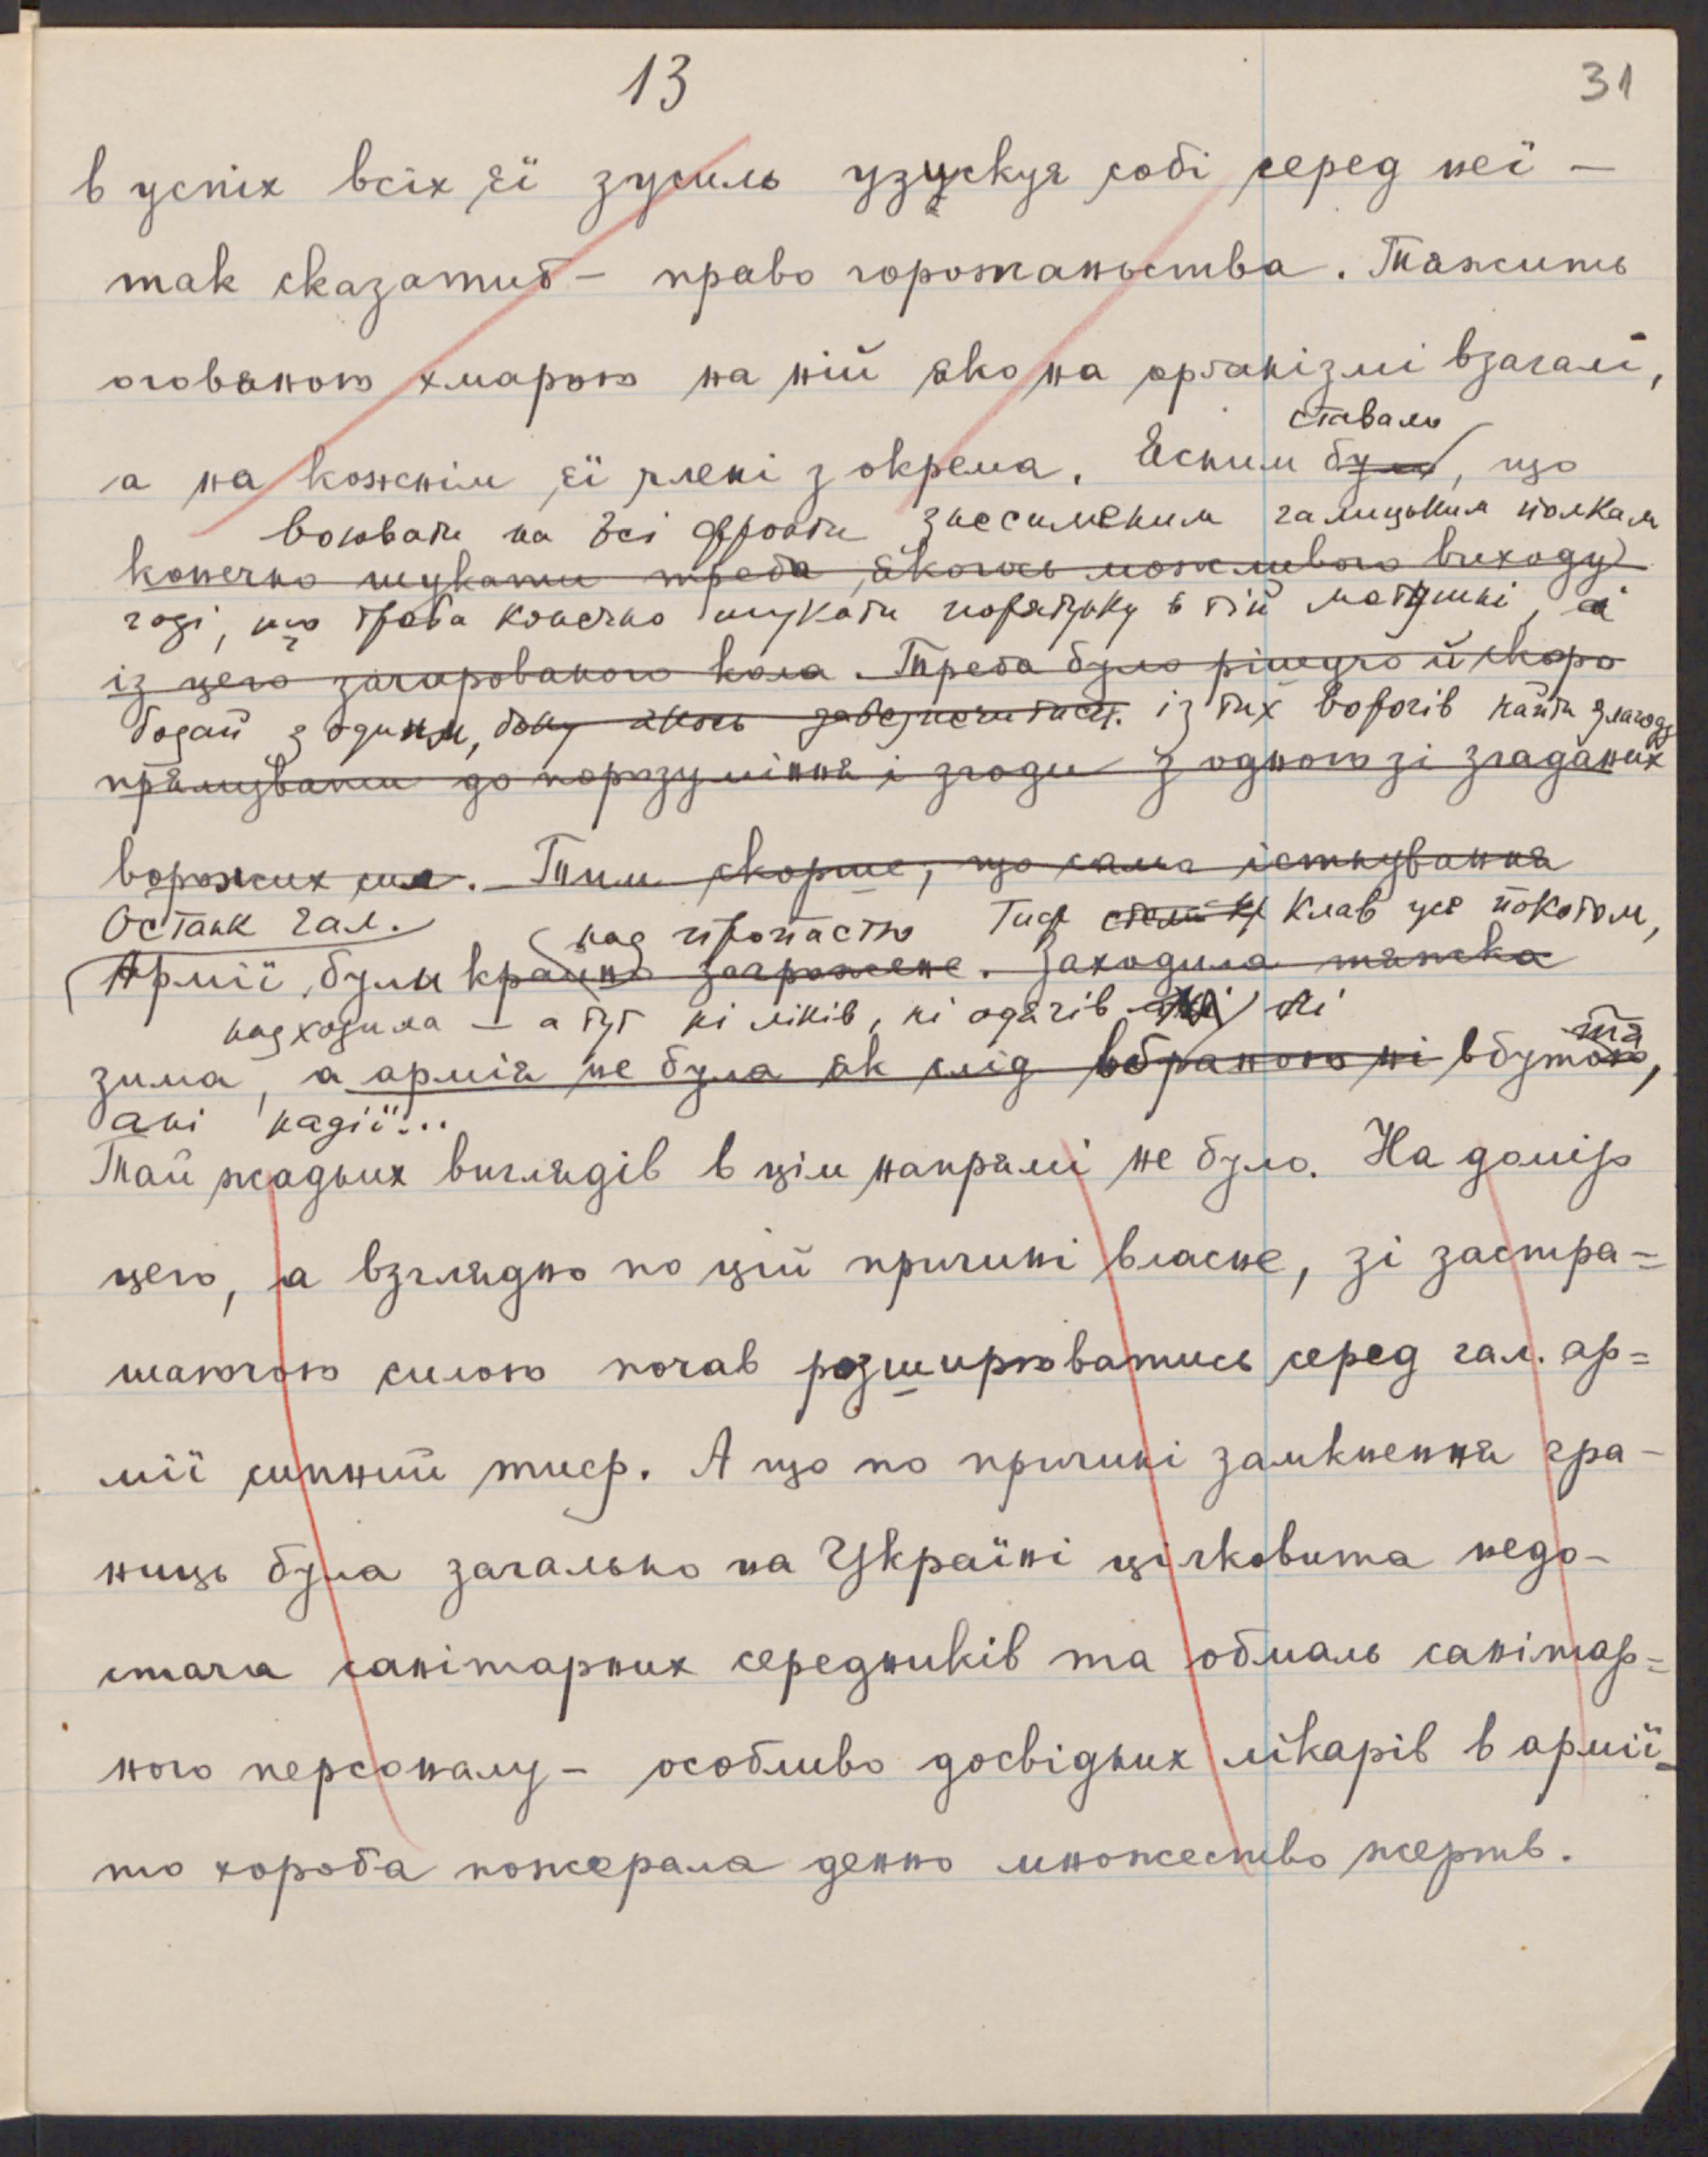 13
31
в успіх всіх її зусиль узускує собі серед неї —
так сказатиб — право горожаньства. Тяжить
оловяною хмарою на ній яко на орґанізмі взагалі,
ставало
а на кожнім її члені зокрема. Ясним було, що
воювати на всі фронти знесиленим галицьким полкам
конечно шукати треба якогось можливого виходу
годі, що треба конечно шукати порятунку в тій матушні, а
із цего зачарованого кола. Треба було рішучо й скоро
бодай з одним, боку якось забезпечитись. із тих ворогів найти злагоду
прямувати до порозуміння і згоди з одною зі згаданих
ворожих сил. Тим скорше, що сама істнування
Останк гал. над пропастю Тиф клав усе покотом,
Армії, були крайно загрожене. Заходила тяжка
надходила — а тут ні ліків, ні одягів ні
зима, а армія не була як слід вбраною ні вбутою,
та
ані надії...
Тай жадних виглядів в цім напрямі не було. На домір
цего, а взглядно по цій причині власне, зі застра=
шаючою силою почав розширюватись серед гал. ар=
мії сипний тиф. А що по причині замкнення гра-
ниць була загально на Україні цілковита недо-
стача санітарних середників та обмаль санітар=
ного персоналу — особливо досвідних лікарів в армії —
то хороба пожерала денно множество жертв.